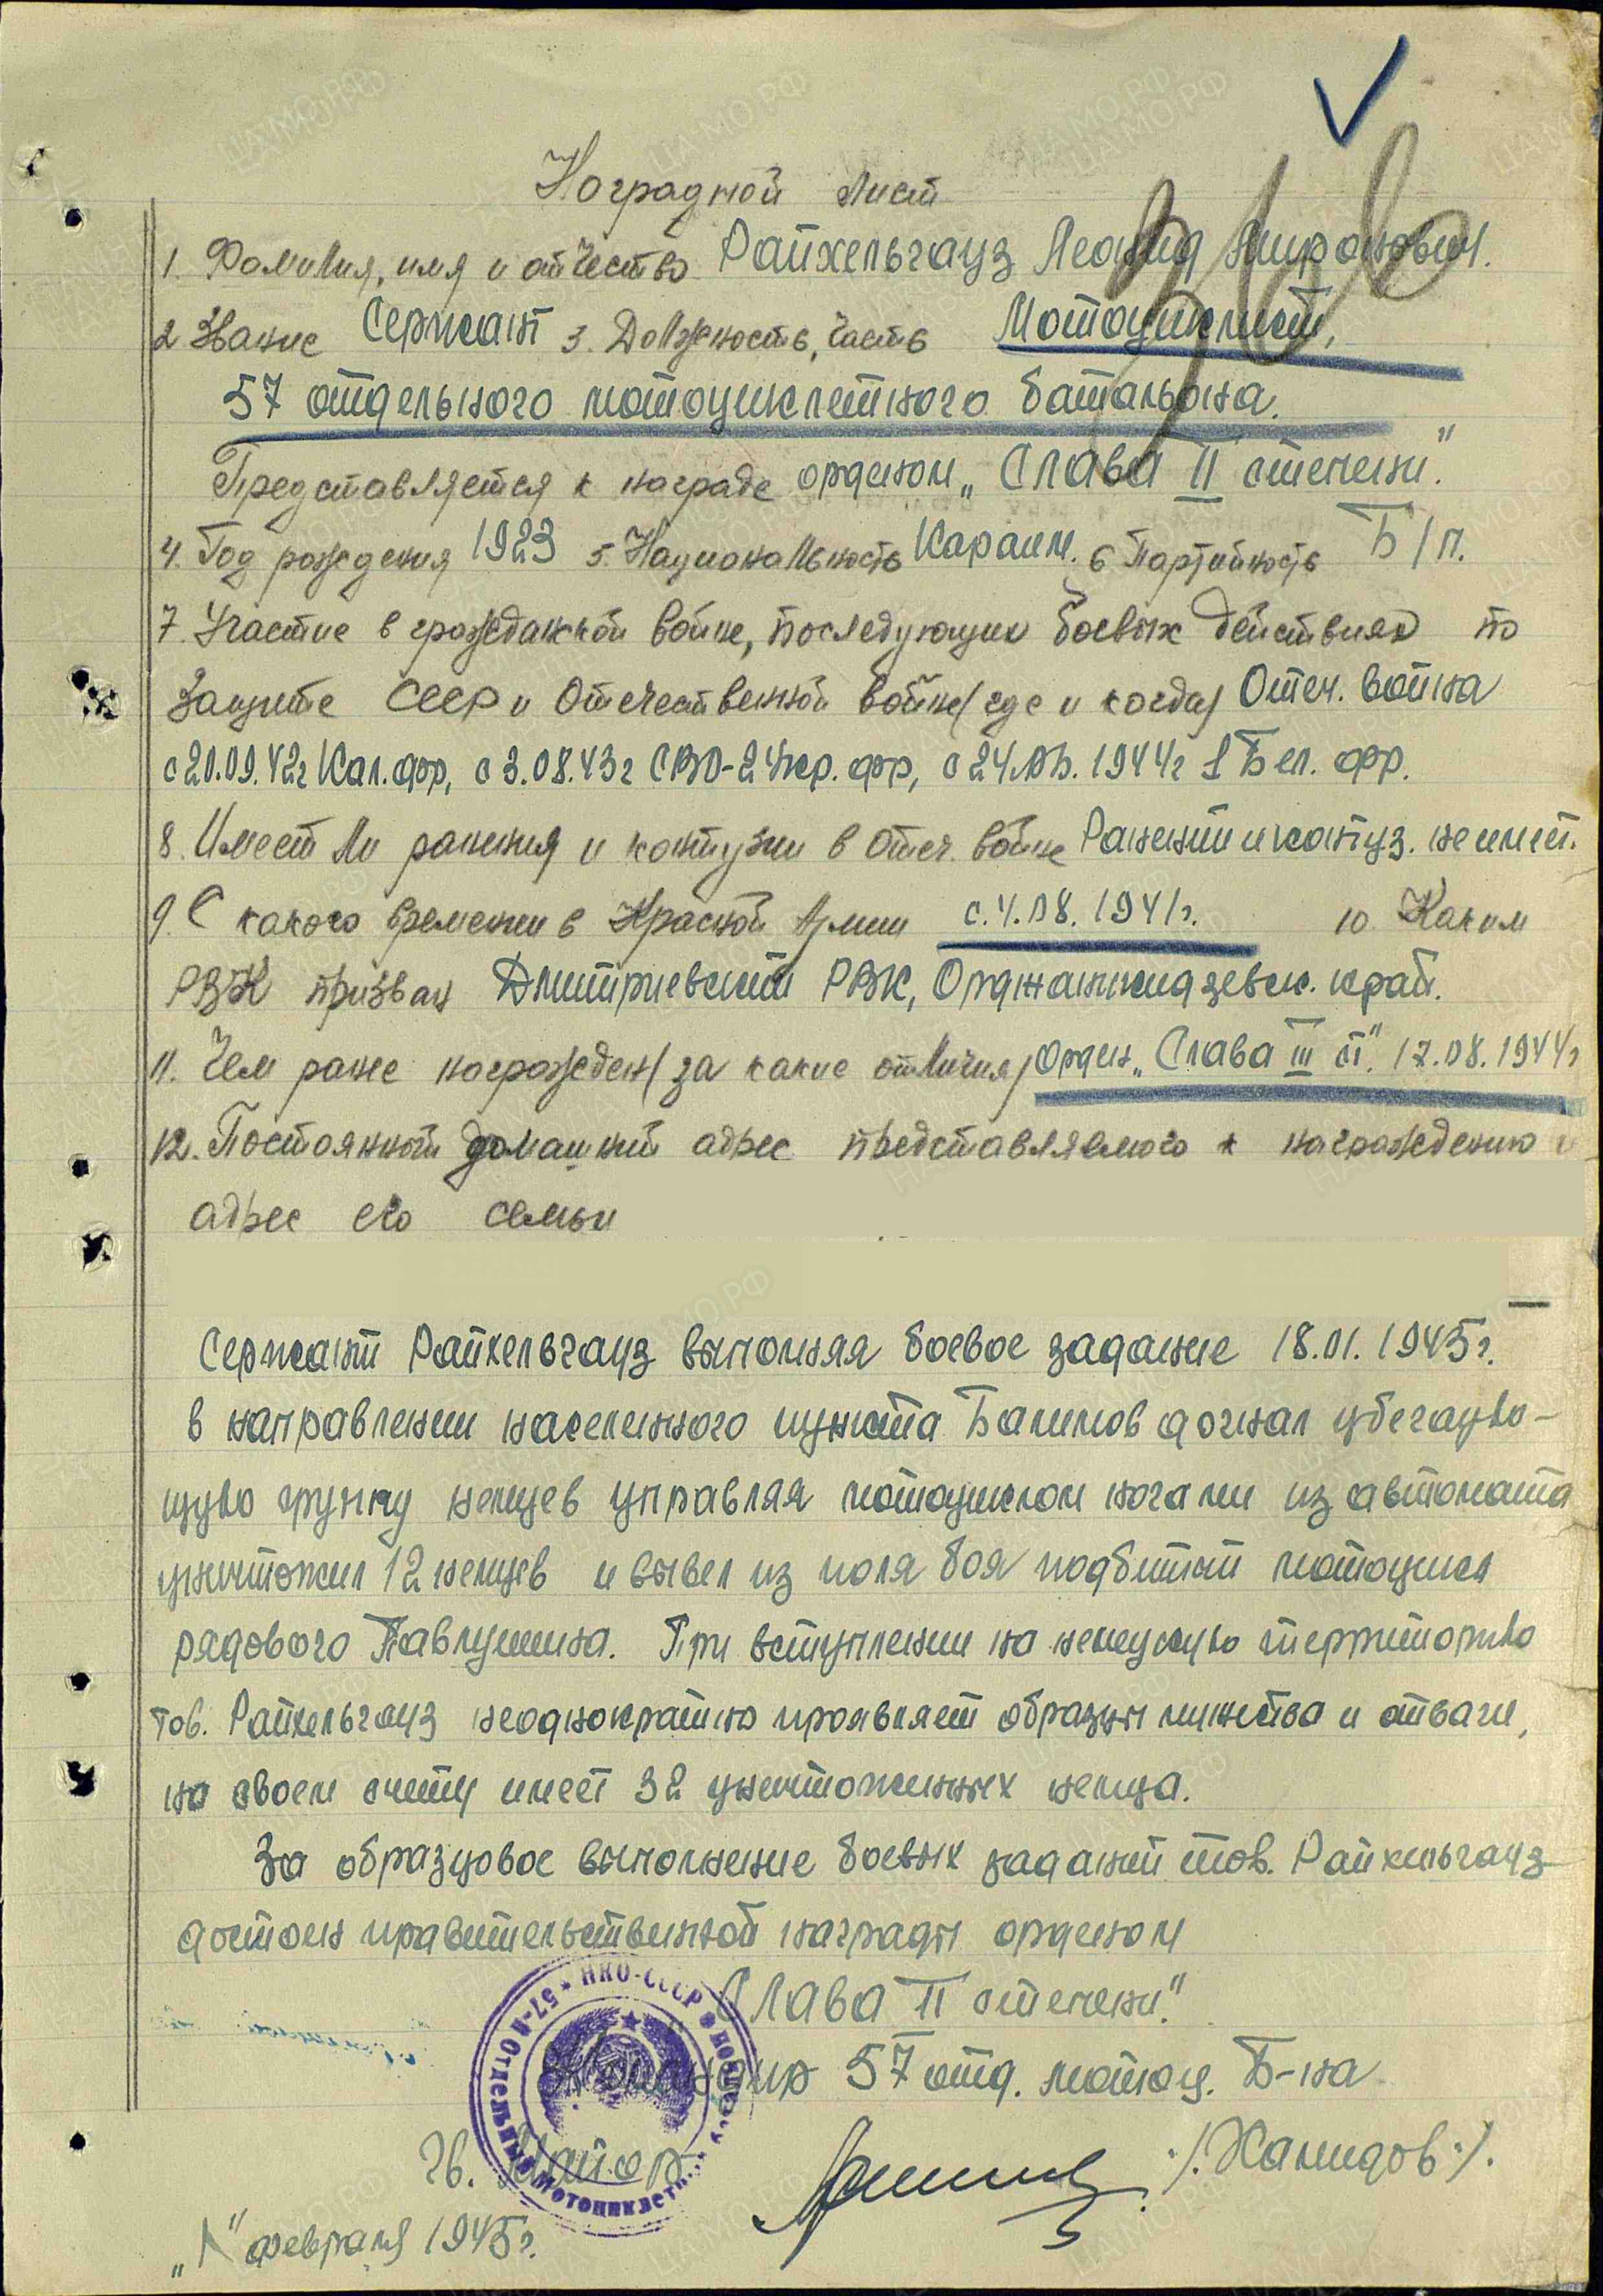 Наградной лист
1. Фамилия, имя и отчество Райхельгауз Леонид Миронович.
2 Звание Сержант 3. Должность, часть Мотоциклист,
57 отдельного мотоциклетного батальона.
Представляется к награде орденом „Слава II степени".
4. Год рождения 1923 5. Национальность Караим. 6 Партийность Б/п.
7. Участие в гражданской войне, последующих боевых действиях по
защите СССР и Отечественной войне (где и когда) Отеч. война
с 20.09.42г Кал. фр, с 3.08.43г СВО-2 Укр. фр, с 24.08. 1944г 1 Бел. фр.
8. Имеет ли ранения и контузии в отеч. войне Ранений и контуз. не имеет.
9. С какого времени в Красной Армии с. 4.08. 1941г. 10. Каким
РВК призван Дмитриевский РВК, Орджоникидзевск. край.
11. Чем ранее награжден (за какие отличия) Орден „Слава III ст". 17.08.1944г
12. Постоянный домашний адрес представляемого к награждению и
адрес его семьи
Сержант Райхельгауз выполняя боевое задание 18.01.1945г.
в направлении населенного пункта Балимов догнал убегаю-
щую группу немцев управляя мотоциклом ногами из автомата
уничтожил 12 немцев и вывел из поля боя подбитый мотоцикл
рядового Павлушина. При вступлении на немецкую территорию
тов. Райхельгауз неоднократно проявляет образцы мужества и отваги,
на своем счету имеет 32 уничтоженных немца.
За образцовое выполнение боевых заданий тов. Райхельгауз
достоин правительственной награды орденом
„Слава II степени".
Командир 57 отд. мотоц. Б-на
Гв. Майор /Хамидов/.
НКО-СССР 57-й Отдельный Мотоциклетн.
февраля 1945г.
ЦАМО.РФ